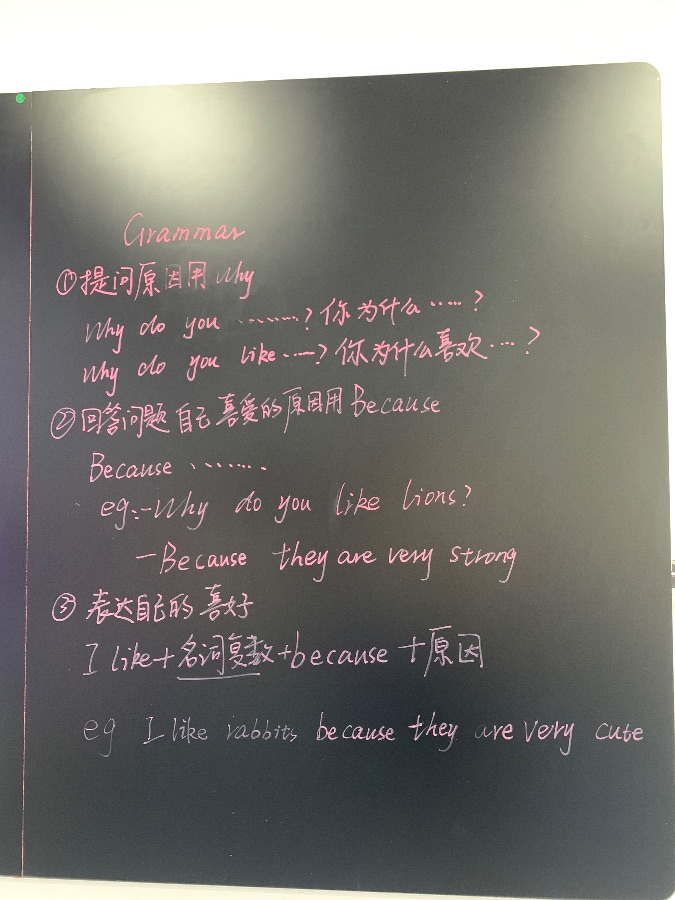 Grammar
①提问原因用why
Why do you ………? 你为什么……?
Why do you like……? 你为什么喜欢……?
②回答问题自己喜爱的原因用Because
Because ………
eg:-Why do you like lions?
-Because they are very strong
③表达自己的喜好
I like+名词复数+because+原因
eg I like rabbits because they are very cute